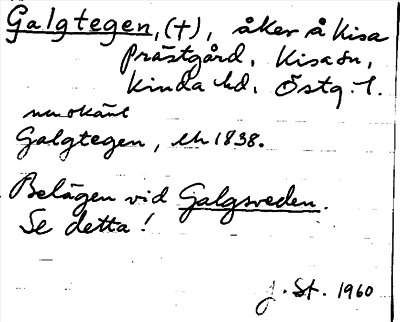 Galgtegen, (†), åker å Kisa
prästgård, Kisa sn,
Kinda hd. Östg. l.
nu okänt
Galgtegen, lh 1838.
Belägen vid Galgsveden.
Se detta!
J. St. 1960